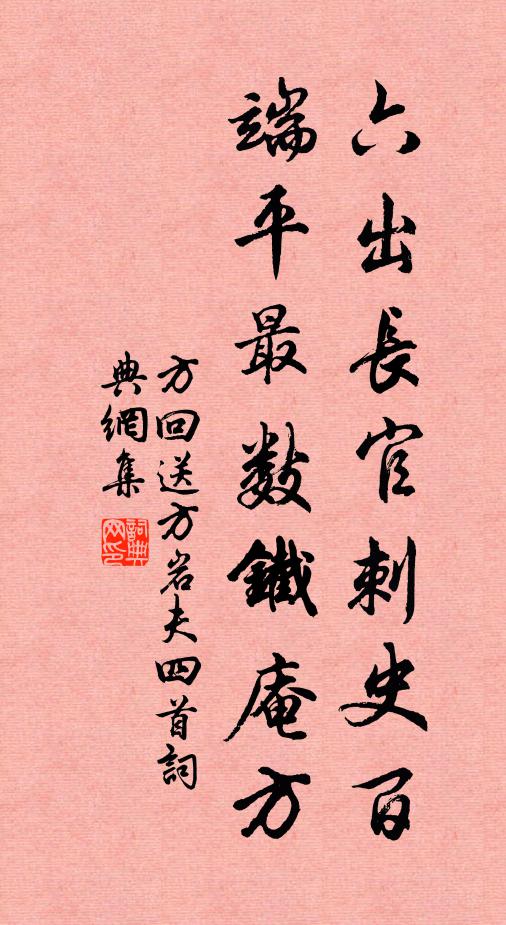 六出長官刺史百
端平最數鐵庵方
方回送方岩夫四首詞
典網集
詞典網印